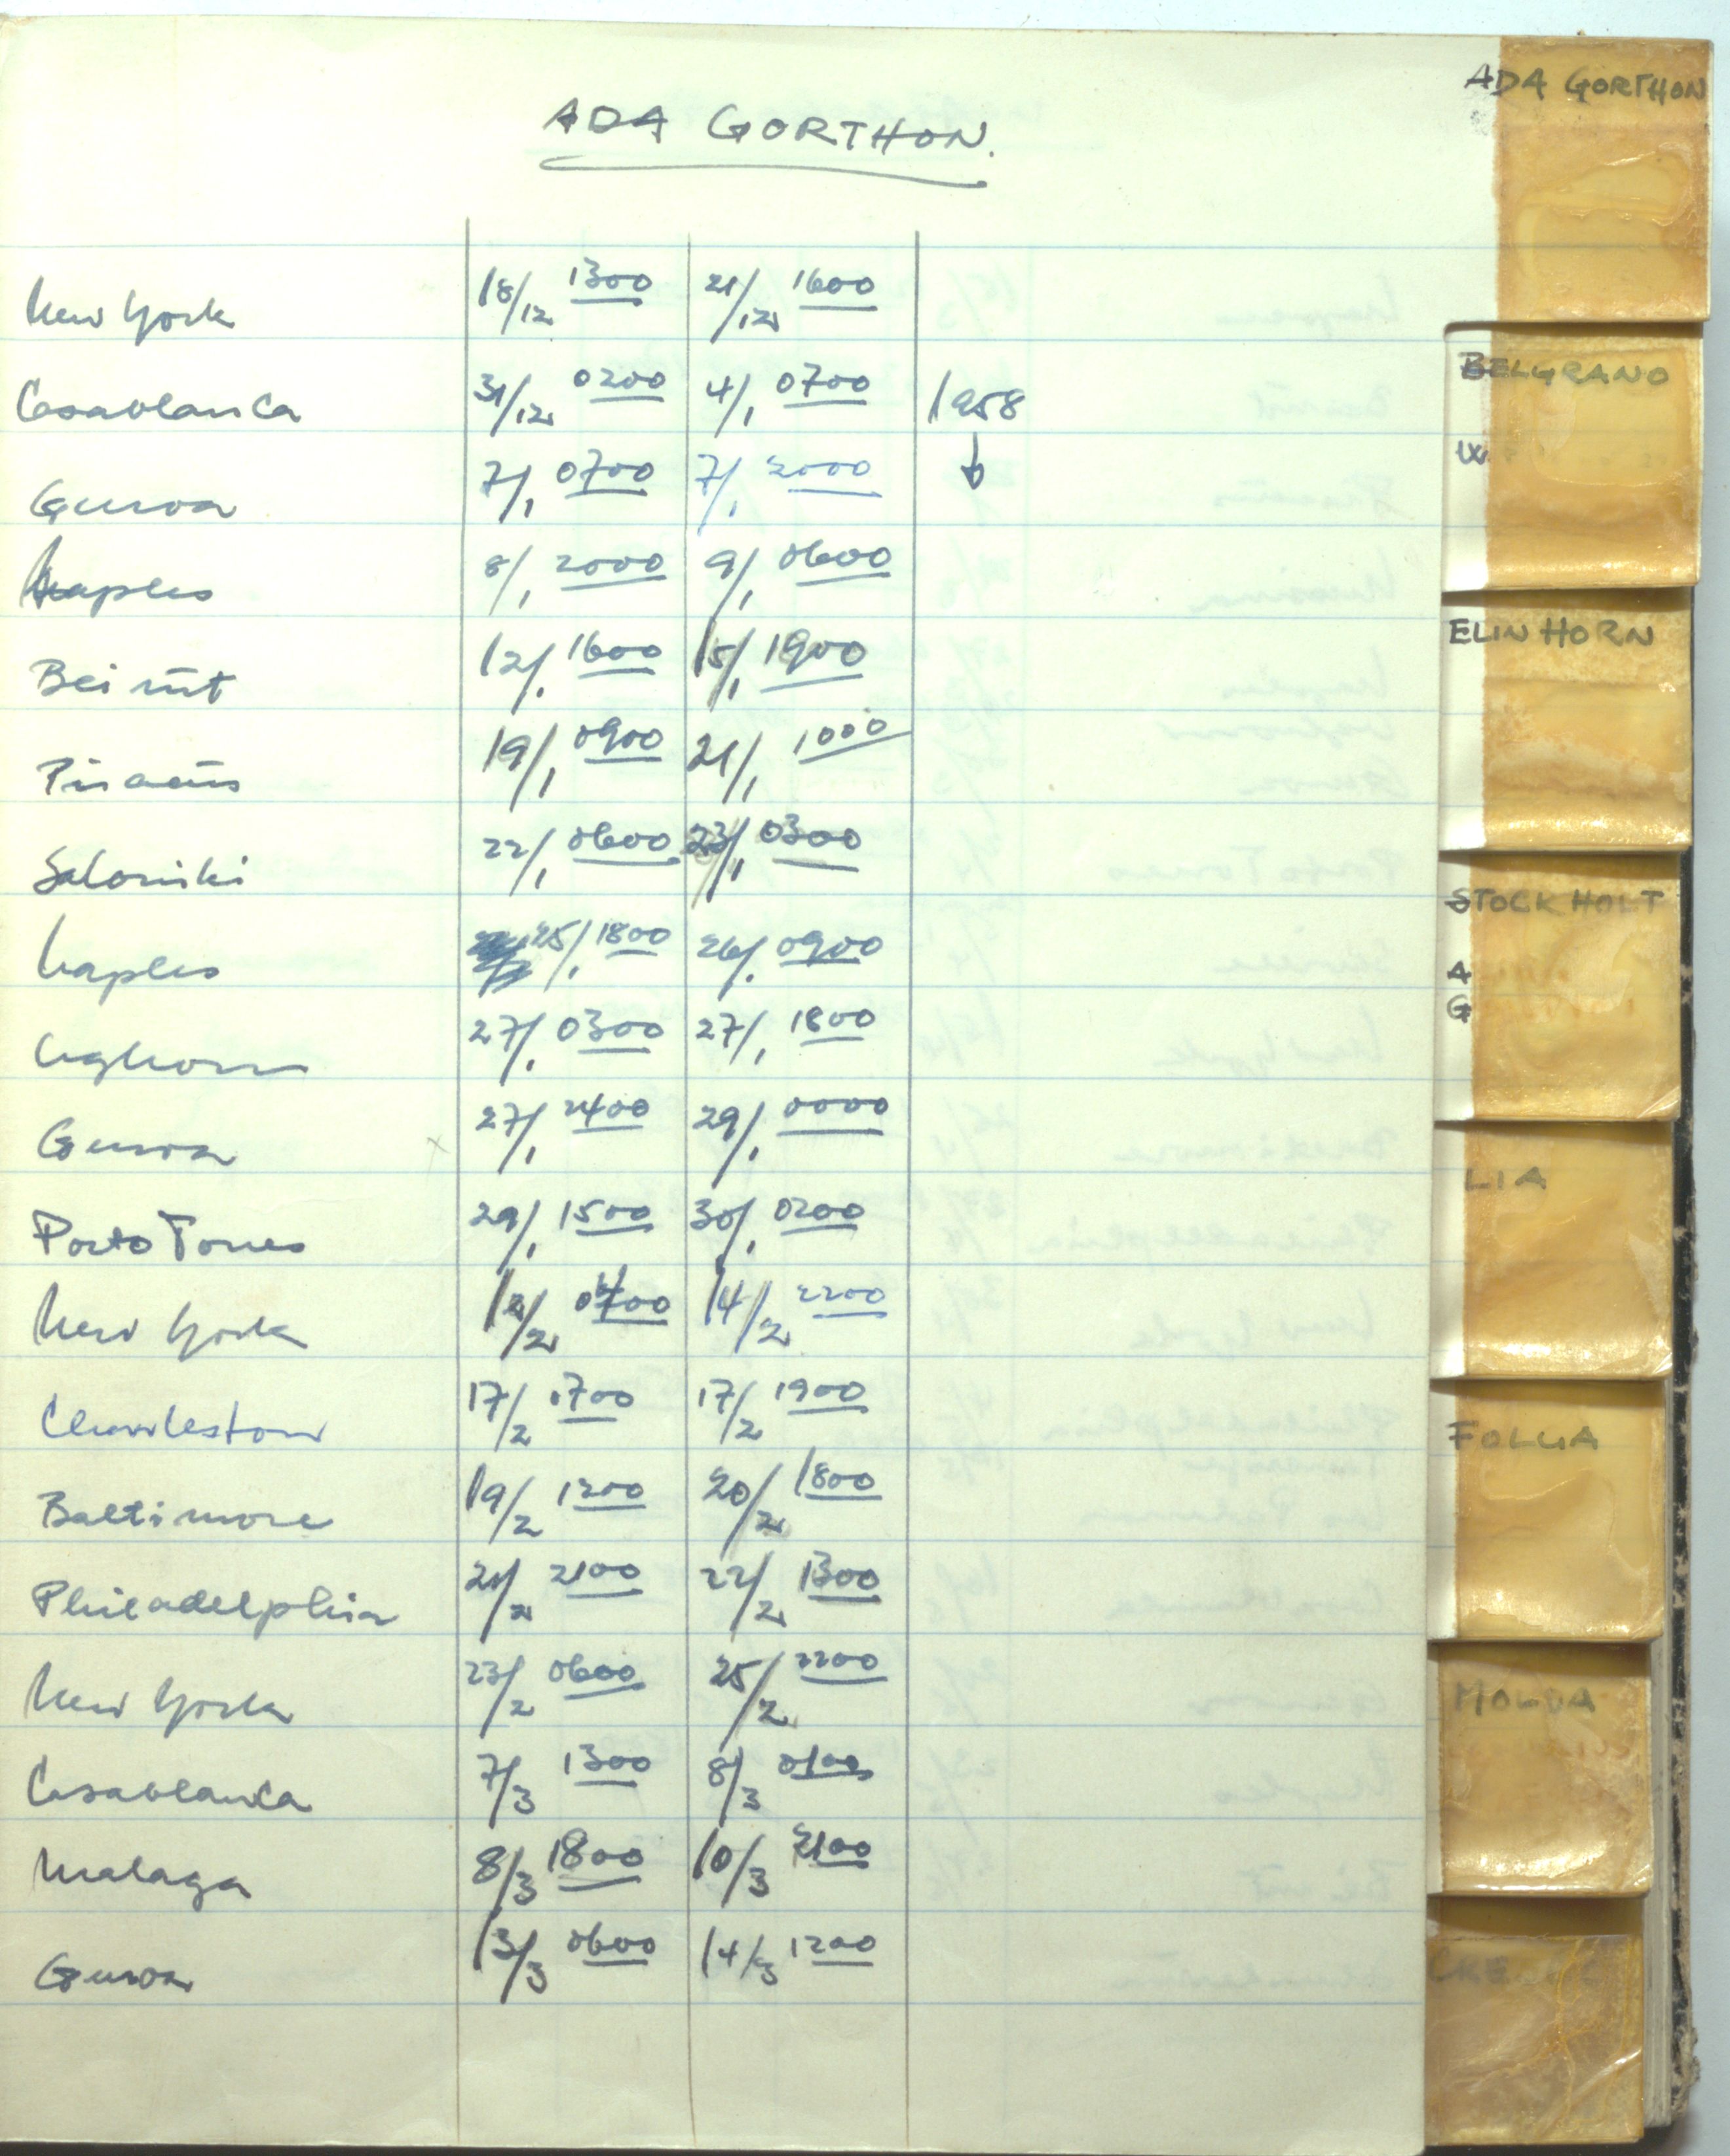 ADA GORTHON.
New York 18/12 1300 21/12 1600
Casablanca 31/12 0200 4/1 0700 1958
Genoa 7/1 0700 7/1 2000
Naples 8/1 2000 9/1 0600
Beirut 12/1 1600 15/1 1900
Piraeus 19/1 0900 21/1 1000
Saloniki 22/1 0600 23/1 0300
Naples 25/1 1800 26/1 0900
Leghorn 27/1 0300 27/1 1800
Genoa 27/1 2400 29/1 0000
Porto Torres 29/1 1500 30/1 0200
New York 14/2 2200
Charleston 17/2 1700 17/2 1900
Baltimore 19/2 1200 20/2 1800
Philadelphia 21/2 2100 22/2 1300
New York 23/2 0600 25/2 2200
Casablanca 7/3 1300 8/3 0100
Malaga 8/3 1800 10/3 2100
Genoa 13/3 0600 14/3 1200
ADA GORTHON
BELGRANO
W
ELIN HORN
STOCKHOLT
A
G
LIA
FOLGA